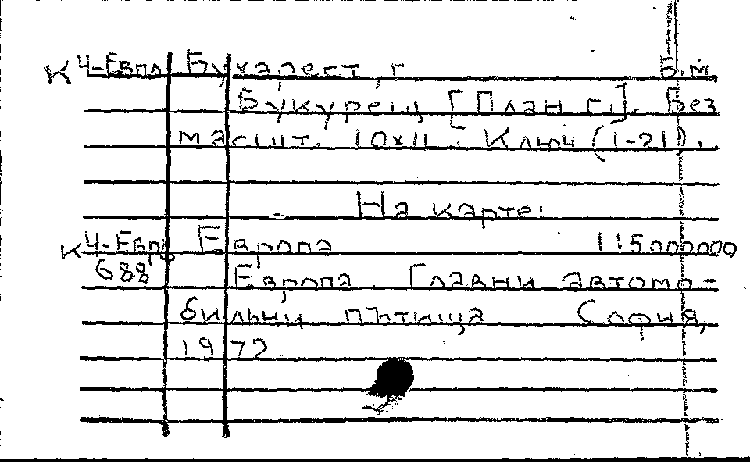 К 4-Евпл Бухарест, г. Б.м.
Букурещ [План г.]. Без
масшт. 10х11. Ключ (1-21).
На карте:
К 4-Евр Европа 1:5000000
688 Европа. Главни автомо-
билни пътища София,
1972